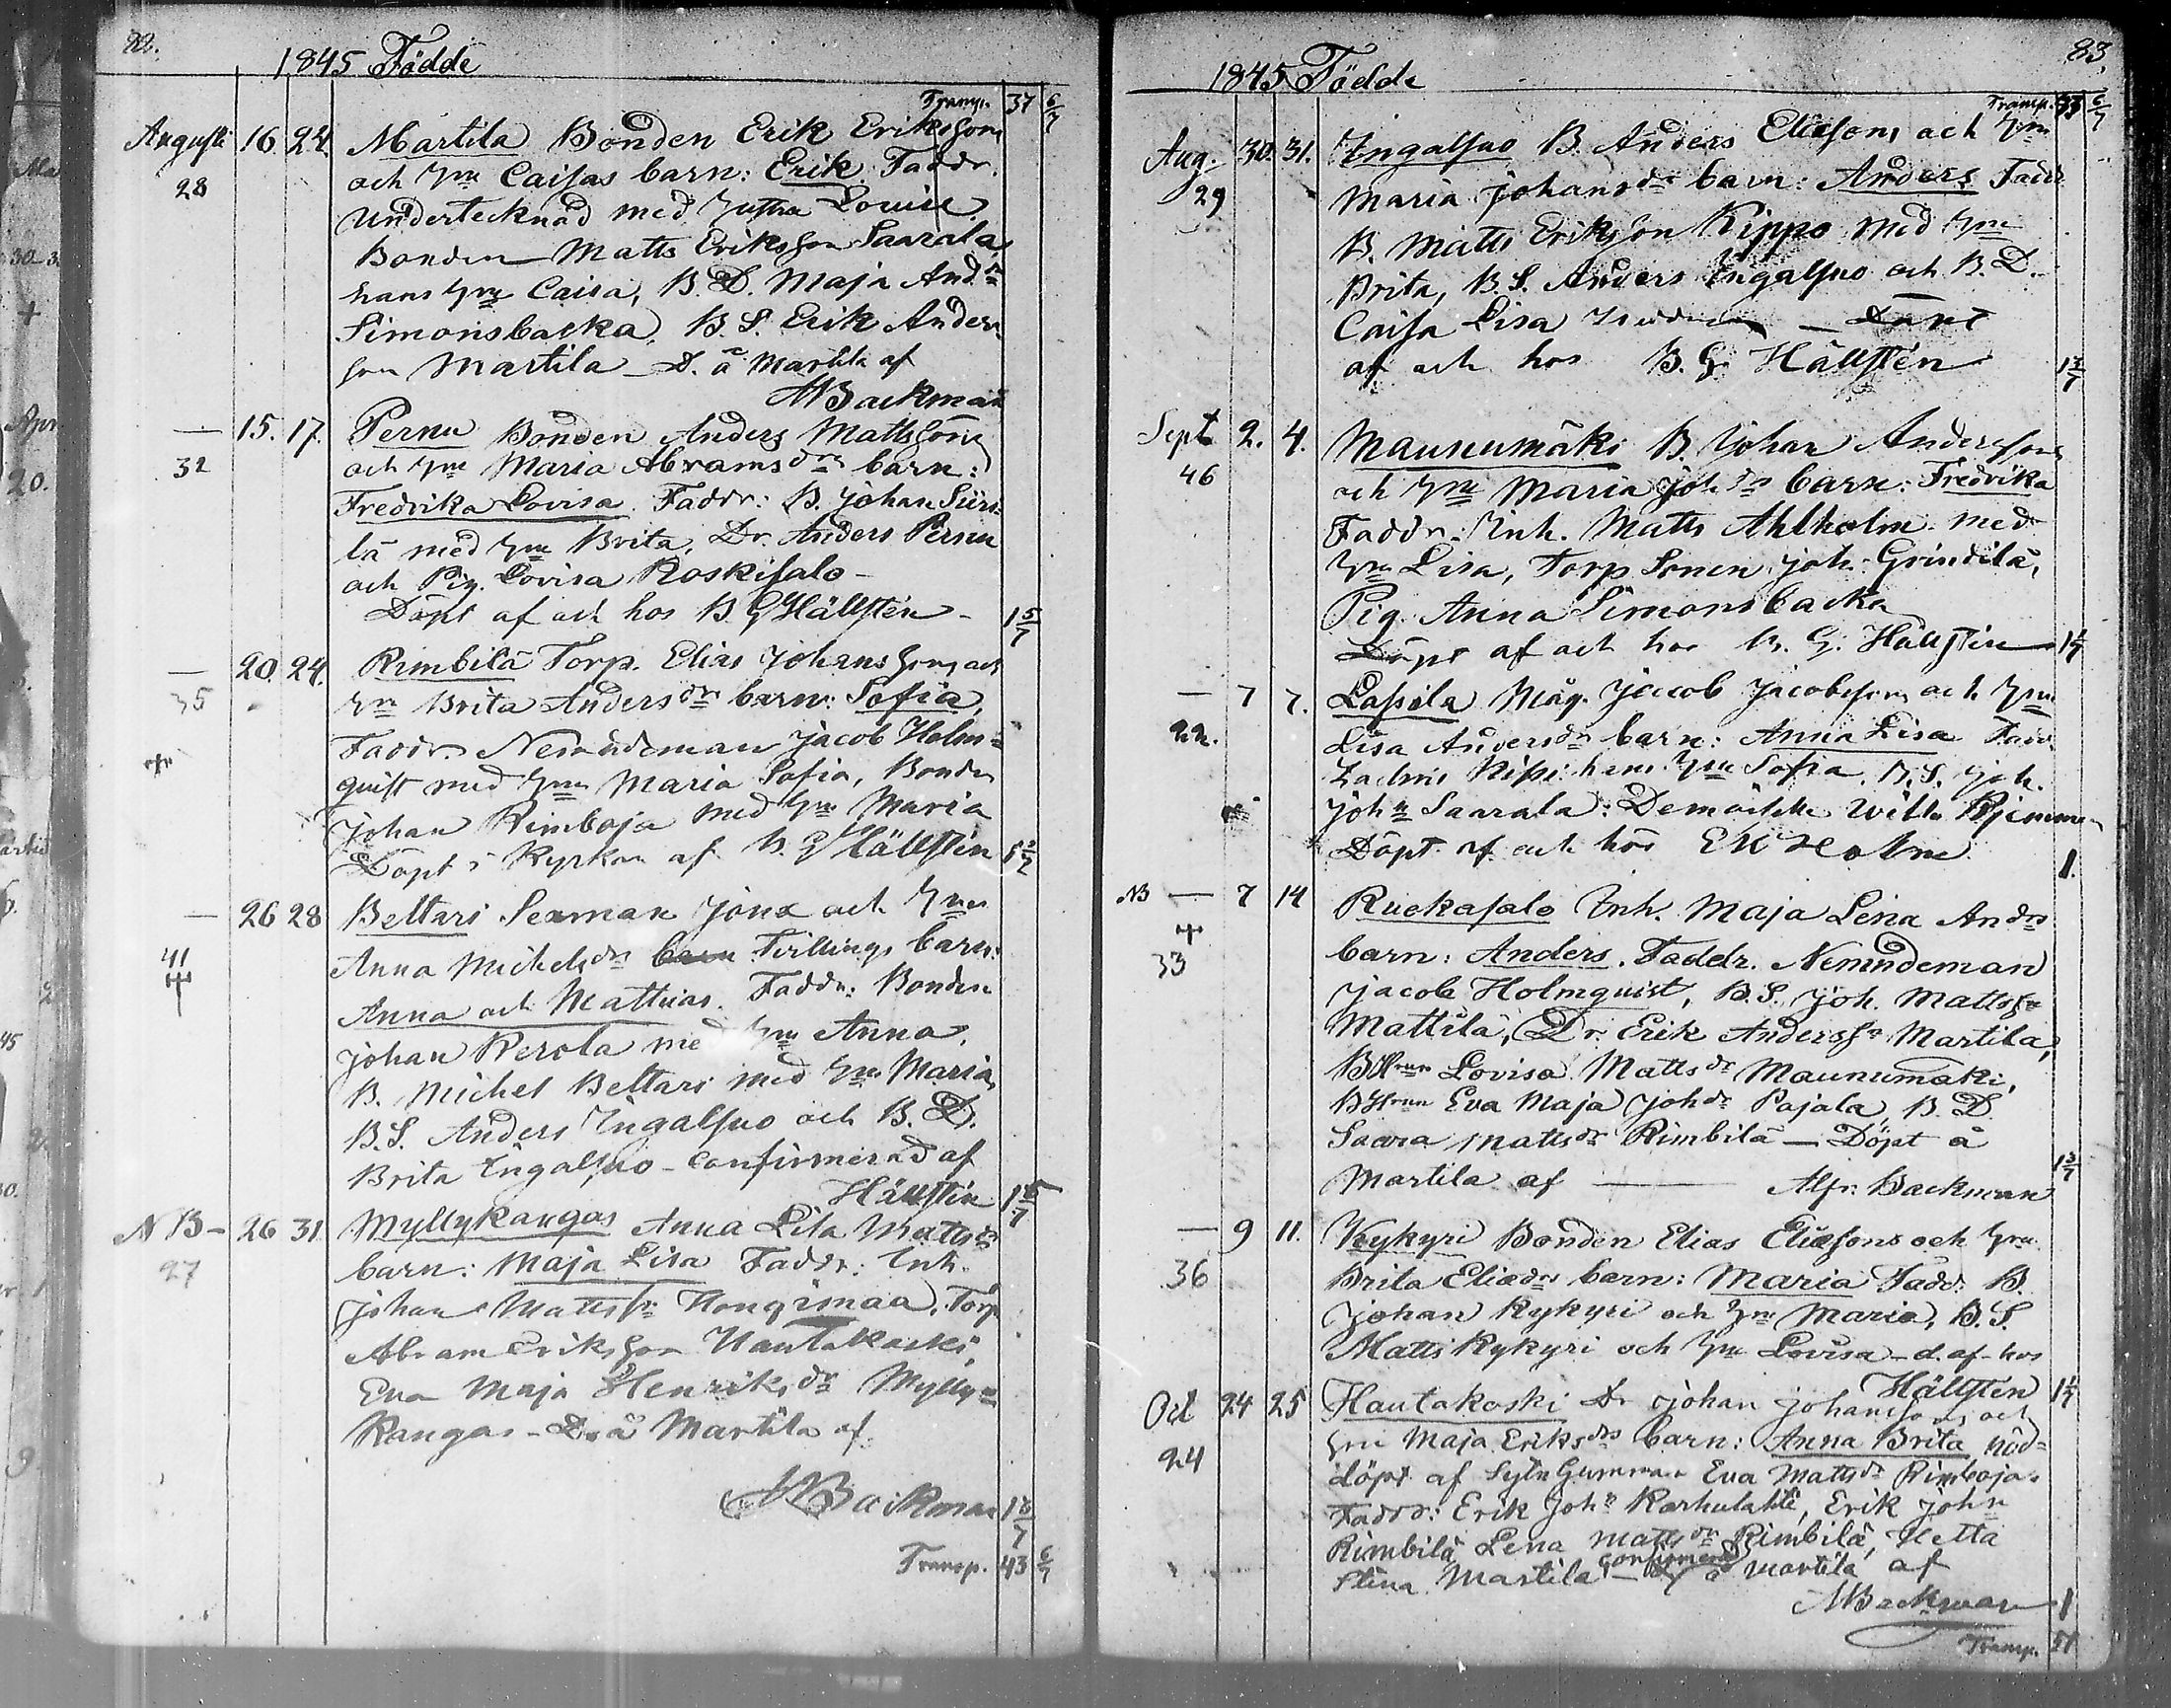 82.
1845 Födde
Transp. 37 6/7
Augusti 16. 24. Martila Bonden Erik Eriksson
28 och Hru Caisas barn: Erik Faddr.
undertecknad med Hustru Louise
Bonden Matts Eriksson Saarala,
hans Hru Caisa, B. D. Maja And dr
Simonsbacka, B. S. Erik Anders
son Martila – D. å Martila af
A Backman
— 15. 17. Pernu Bonden Anders Mattsson
32 och Hru Maria Abrams drs barn:
Fredrika Lovisa. Faddr: B. Johan Siiri-
lä med Hru Brita, Dr. Anders Pernu
och Pig. Lovisa Koskisalo –
Döpt af och hos B G Hällstén – 1 5/7
— 20. 24. Rimbilä Torp. Elias Johansson och
35 Hru Brita Anders drs barn: Sofia,
Faddr. Nemndeman Jacob Holm-
quist med Hru Maria Sofia, Bonden
Johan Rimboja med Hru Maria
Döpt i Kyrkan af B. G Hällstén
— 26 28 Beltari Sexman Jonæ och Hru
41 Anna Michels drs barn Tvillings barn:
Anna och Matthias. Faddr: Bonden
Johan Rerola med Hru Anna,
B. Michel Beltari med Hru Maria,
B. S. Anders Ingalsuo och B. D.
Brita Ingalsuo – confirmerad af
Hällstén
NB – 26 31 Myllykangas Anna Lisa Matts drs
27 barn: Maja Lisa Faddr: Inh.
Johan Matts s: Hongimaa, Torp
Abram Eriksson Hautakoski,
Eva Maja Henriks dr Mylly-
kangas – D. å Martila af
A Backman
Transp. 43 6/7
83.
1845 Födde
Transp. 6/7
Aug. 30. 31. Ingalsuo B. Anders Eliæsons och Hru
29 Maria Johans dr barn: Anders Faddr
B. Matts Eriksson Rippo med Hru
Brita, B. S. Anders Ingalsuo och B. D.
Caisa Lisa – Döpt
af och hos B. G. Hällstén
Sept 2. 4. Maunumäki B. Johan Anderssons
46 och Hru Maria Joh drs barn: Fredrika
Faddr. Inh. Matts Ahlholm med
Hru Lisa, Torp Sonen Joh. Grindilä,
Pig. Anna Simonsbacka
Döpt af och hos B. G. Hällstén
— 7 7. Lassila Måg. Jacob Jacobsson och Hru
22. Lisa Anders drs barn: Anna Lisa Faddr.
hans Hru Sofia, B. S. Joh.
Joh n Saarala: Demoiselle
Döpt af och hos E K Holm 1.
NB — 7 14 Ruekasalo Inh. Maja Lena And drs
33 barn: Anders. Faddr. Nemndeman
Jacob Holmquist, B. S. Joh. Mattss n
Mattila, Dr. Erik Anderss n Martila,
Lovisa Matts dr Maunumäki,
Eva Maja Joh dr Pajala, B. D.
Saara Matts dr Rimbilä – Döpt å
Martila af — Alfr: Backman 1 3/7
— 9 11. Kykyri Bonden Elias Eliæsons och Hru
36 Brita Eliæ drs barn: Maria Fadd: B.
Johan Kykyri och Hru Maria, B. S.
Matts Kykyri och Hru Lovisa – d. af – hos
Hällstén
Oct 24 25 Hautakoski Dr Johan Johanssons och
24 Hru Maja Eriks drs barn: Anna Brita nöd-
döpt af Gumman Eva Matts dr Rimboja.
Faddr: Erik Joh n Karhulahti, Erik Joh n
Rimbilä, Lena Matts dr Rimbilä, Hetta
Stina Martila – confirmerad å Martila af
A Backman 1
Transp. 51